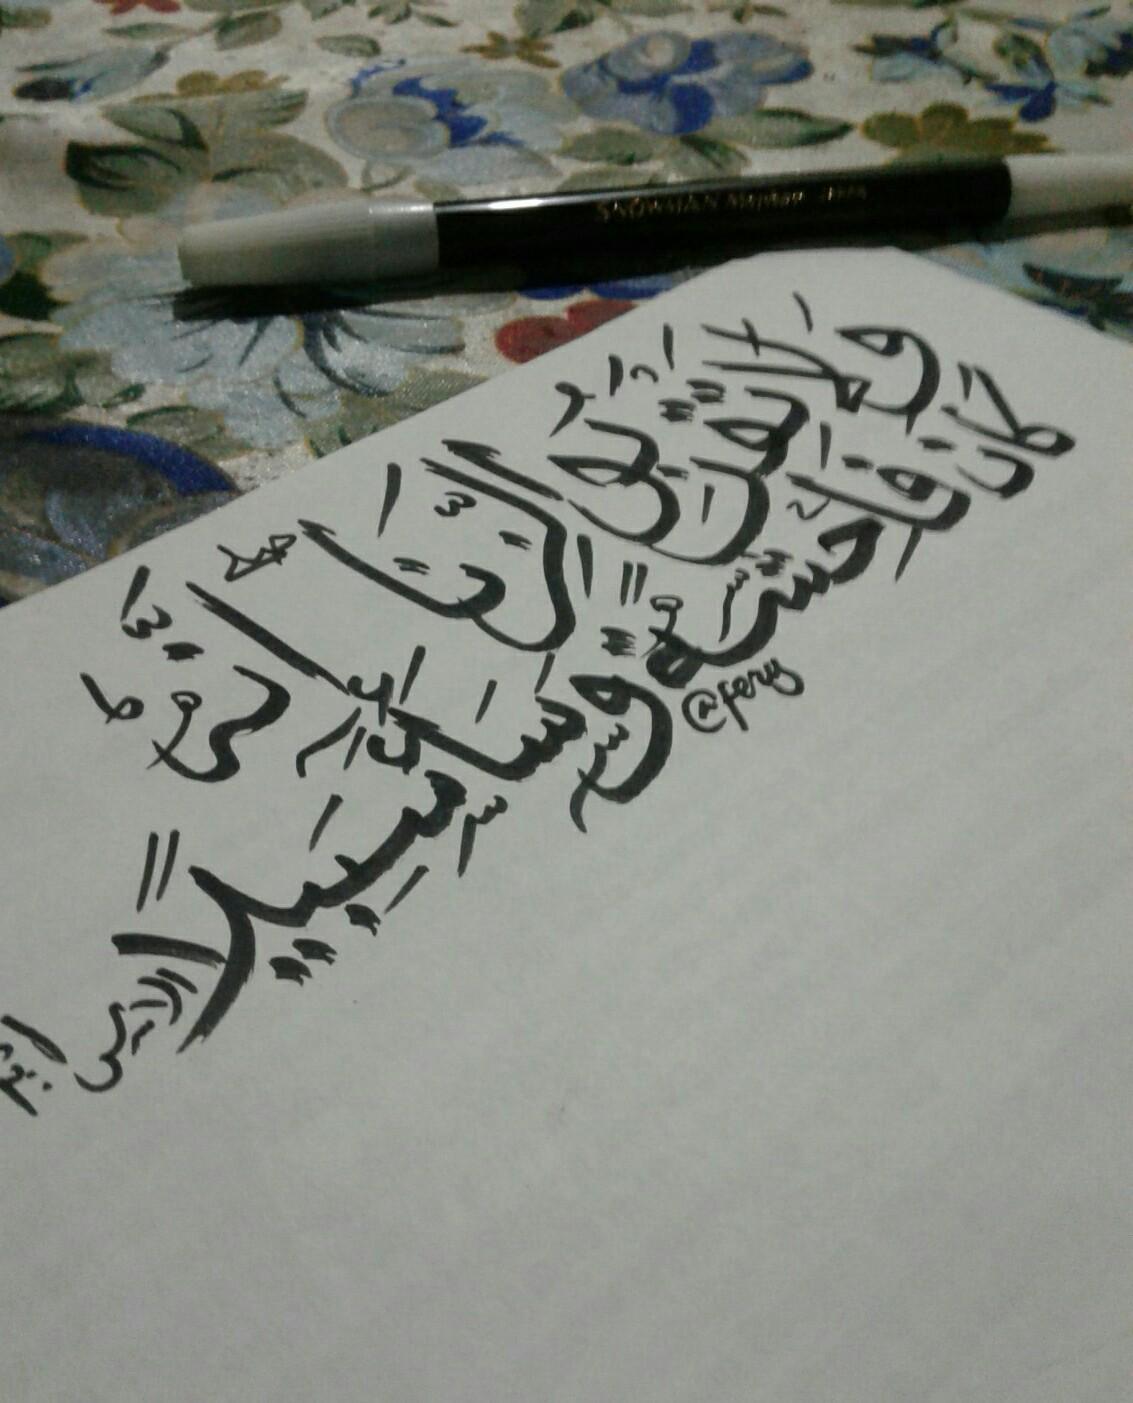 SNOWMAN Marker
وَلَا تَقْرَبُوا الزِّنَا إِنَّهُ
كَانَ فَاحِشَةً وَسَاءَ سَبِيلًا
@fery
الاسراء